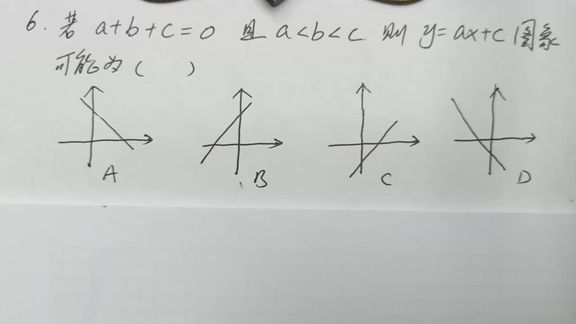 6. 若 a+b+c=0 且 a<b<c. 则 y=ax+c 图象
可能为( )
A B C D